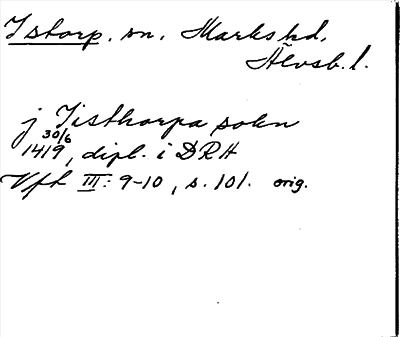 Istorp, sn, Marks hd,
Älvsb. l.
j Jisthorpa sokn
30/6
1419, dipl. i DRH
Vft III: 9-10, s. 101. orig.